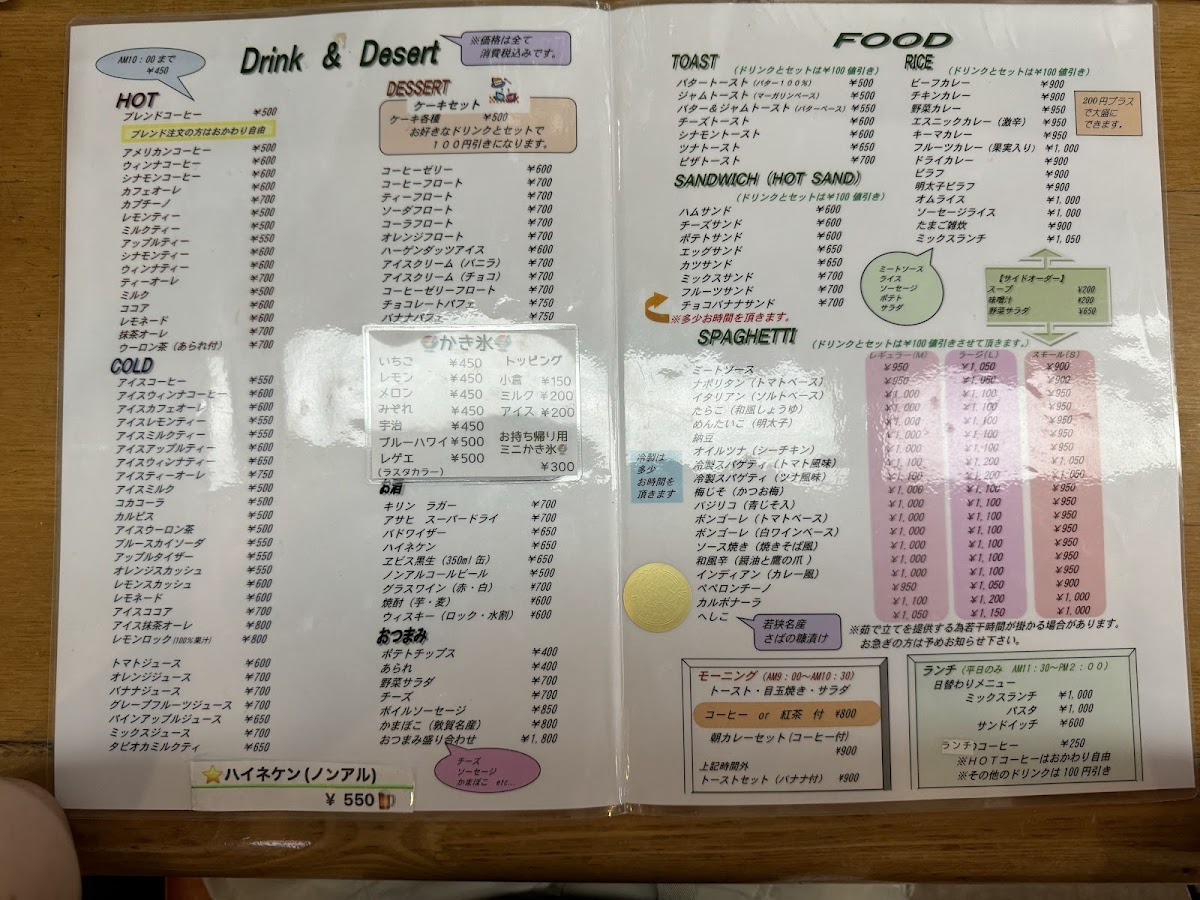 Drink & Desert
※価格は全て
消費税込みです。
AM10：00まで
¥450
HOT
ブレンドコーヒー ¥500
ブレンド注文の方はおかわり自由
アメリカンコーヒー ¥500
ウィンナコーヒー ¥600
シナモンコーヒー ¥600
カフェオーレ ¥600
カプチーノ ¥700
レモンティー ¥500
ミルクティー ¥500
アップルティー ¥550
シナモンティー ¥600
ウィンナティー ¥600
ティーオーレ ¥700
ミルク ¥500
ココア ¥600
レモネード ¥600
抹茶オーレ ¥700
ウーロン茶（あられ付） ¥700
COLD
アイスコーヒー ¥550
アイスウィンナコーヒー ¥600
アイスカフェオーレ ¥600
アイスレモンティー ¥550
アイスミルクティー ¥550
アイスアップルティー ¥600
アイスウィンナティ ¥650
アイスティーオーレ ¥750
アイスミルク ¥500
コカコーラ ¥500
カルピス ¥500
アイスウーロン茶 ¥500
ブルースカイソーダ ¥550
アップルタイザー ¥550
オレンジスカッシュ ¥550
レモンスカッシュ ¥600
レモネード ¥600
アイスココア ¥700
アイス抹茶オーレ ¥800
レモンロック(100%果汁) ¥800
トマトジュース ¥600
オレンジジュース ¥700
バナナジュース ¥700
グレープフルーツジュース ¥700
パインアップルジュース ¥650
ミックスジュース ¥700
タピオカミルクティ ¥650
⭐ハイネケン(ノンアル)
¥ 550
DESSERT
ケーキセット
ケーキ各種 ¥500
お好きなドリンクとセットで
１００円引きになります。
コーヒーゼリー ¥600
コーヒーフロート ¥700
ティーフロート ¥700
ソーダフロート ¥700
コーラフロート ¥700
オレンジフロート ¥700
ハーゲンダッツアイス ¥600
アイスクリーム（バニラ） ¥700
アイスクリーム（チョコ） ¥700
コーヒーゼリーフロート ¥700
チョコレートパフェ ¥750
バナナパフェ ¥750
かき氷
いちご ¥450
レモン ¥450
メロン ¥450
みぞれ ¥450
宇治 ¥450
ブルーハワイ ¥500
レゲエ ¥500
(ラスタカラー)
トッピング
小倉 ¥150
ミルク ¥200
アイス ¥200
お持ち帰り用
ミニかき氷
¥300
お酒
キリン ラガー ¥700
アサヒ スーパードライ ¥700
バドワイザー ¥650
ハイネケン ¥650
ヱビス黒生（350ml缶） ¥650
ノンアルコールビール ¥500
グラスワイン（赤・白） ¥700
焼酎（芋・麦） ¥600
ウィスキー（ロック・水割） ¥600
おつまみ
ポテトチップス ¥400
あられ ¥400
野菜サラダ ¥700
チーズ ¥700
ボイルソーセージ ¥850
かまぼこ（敦賀名産） ¥800
おつまみ盛り合わせ ¥1,800
チーズ
ソーセージ
かまぼこ etc…
FOOD
TOAST
（ドリンクとセットは¥100値引き）
バタートースト（バター１００％） ¥500
ジャムトースト（マーガリンベース） ¥500
バター＆ジャムトースト（バターベース） ¥550
チーズトースト ¥600
シナモントースト ¥600
ツナトースト ¥650
ピザトースト ¥700
SANDWICH（HOT SAND）
（ドリンクとセットは¥100値引き）
ハムサンド ¥600
チーズサンド ¥600
ポテトサンド ¥600
エッグサンド ¥650
カツサンド ¥650
ミックスサンド ¥700
フルーツサンド ¥700
チョコバナナサンド ¥700
※多少お時間を頂きます。
RICE
（ドリンクとセットは¥100値引き）
ビーフカレー ¥900
チキンカレー ¥900
野菜カレー ¥900
エスニックカレー（激辛） ¥950
キーマカレー ¥950
フルーツカレー（果実入り） ¥1,000
ドライカレー ¥900
ピラフ ¥900
明太子ピラフ ¥900
オムライス ¥1,000
ソーセージライス ¥1,000
たまご雑炊 ¥900
ミックスランチ ¥1,050
200円プラス
で大盛に
できます。
ミートソース
ライス
ソーセージ
ポテト
サラダ
【サイドオーダー】
スープ ¥200
味噌汁 ¥200
野菜サラダ ¥650
SPAGHETTI
（ドリンクとセットは¥100値引きさせて頂きます。）
レギュラー(M) ラージ(L) スモール(S)
ミートソース ¥950 ¥1,050 ¥900
ナポリタン（トマトベース） ¥950 ¥1,050 ¥900
イタリアン（ソルトベース） ¥1,000 ¥1,100 ¥950
たらこ（和風しょうゆ） ¥1,000 ¥1,100 ¥950
めんたいこ（明太子） ¥1,000 ¥1,100 ¥950
納豆 ¥1,000 ¥1,100 ¥950
オイルツナ（シーチキン） ¥1,000 ¥1,100 ¥950
冷製スパゲティ（トマト風味） ¥1,100 ¥1,200 ¥1,050
冷製スパゲティ（ツナ風味） ¥1,100 ¥1,200 ¥1,050
梅じそ（かつお梅） ¥1,000 ¥1,100 ¥950
バジリコ（青じそ入） ¥1,000 ¥1,100 ¥950
ボンゴーレ（トマトベース） ¥1,000 ¥1,100 ¥950
ボンゴーレ（白ワインベース） ¥1,000 ¥1,100 ¥950
ソース焼き（焼きそば風） ¥1,000 ¥1,100 ¥950
和風辛（醤油と鷹の爪） ¥1,000 ¥1,100 ¥950
インディアン（カレー風） ¥1,000 ¥1,100 ¥950
ペペロンチーノ ¥950 ¥1,050 ¥900
カルボナーラ ¥1,100 ¥1,200 ¥1,000
へしこ ¥1,050 ¥1,150 ¥1,000
冷製は
多少
お時間を
頂きます
若狭名産
さばの糠漬け
※茹で立てを提供する為若干時間が掛かる場合があります。
お急ぎの方は予めお知らせ下さい。
モーニング（AM9：00～AM10：30）
トースト・目玉焼き・サラダ
コーヒー or 紅茶 付 ¥800
朝カレーセット(コーヒー付)
¥900
上記時間外
トーストセット（バナナ付） ¥900
ランチ（平日のみ AM11：30～PM2：00）
日替わりメニュー
ミックスランチ ¥1,000
パスタ ¥1,000
サンドイッチ ¥600
ランチコーヒー ¥250
※ＨＯＴコーヒーはおかわり自由
※その他のドリンクは100円引き